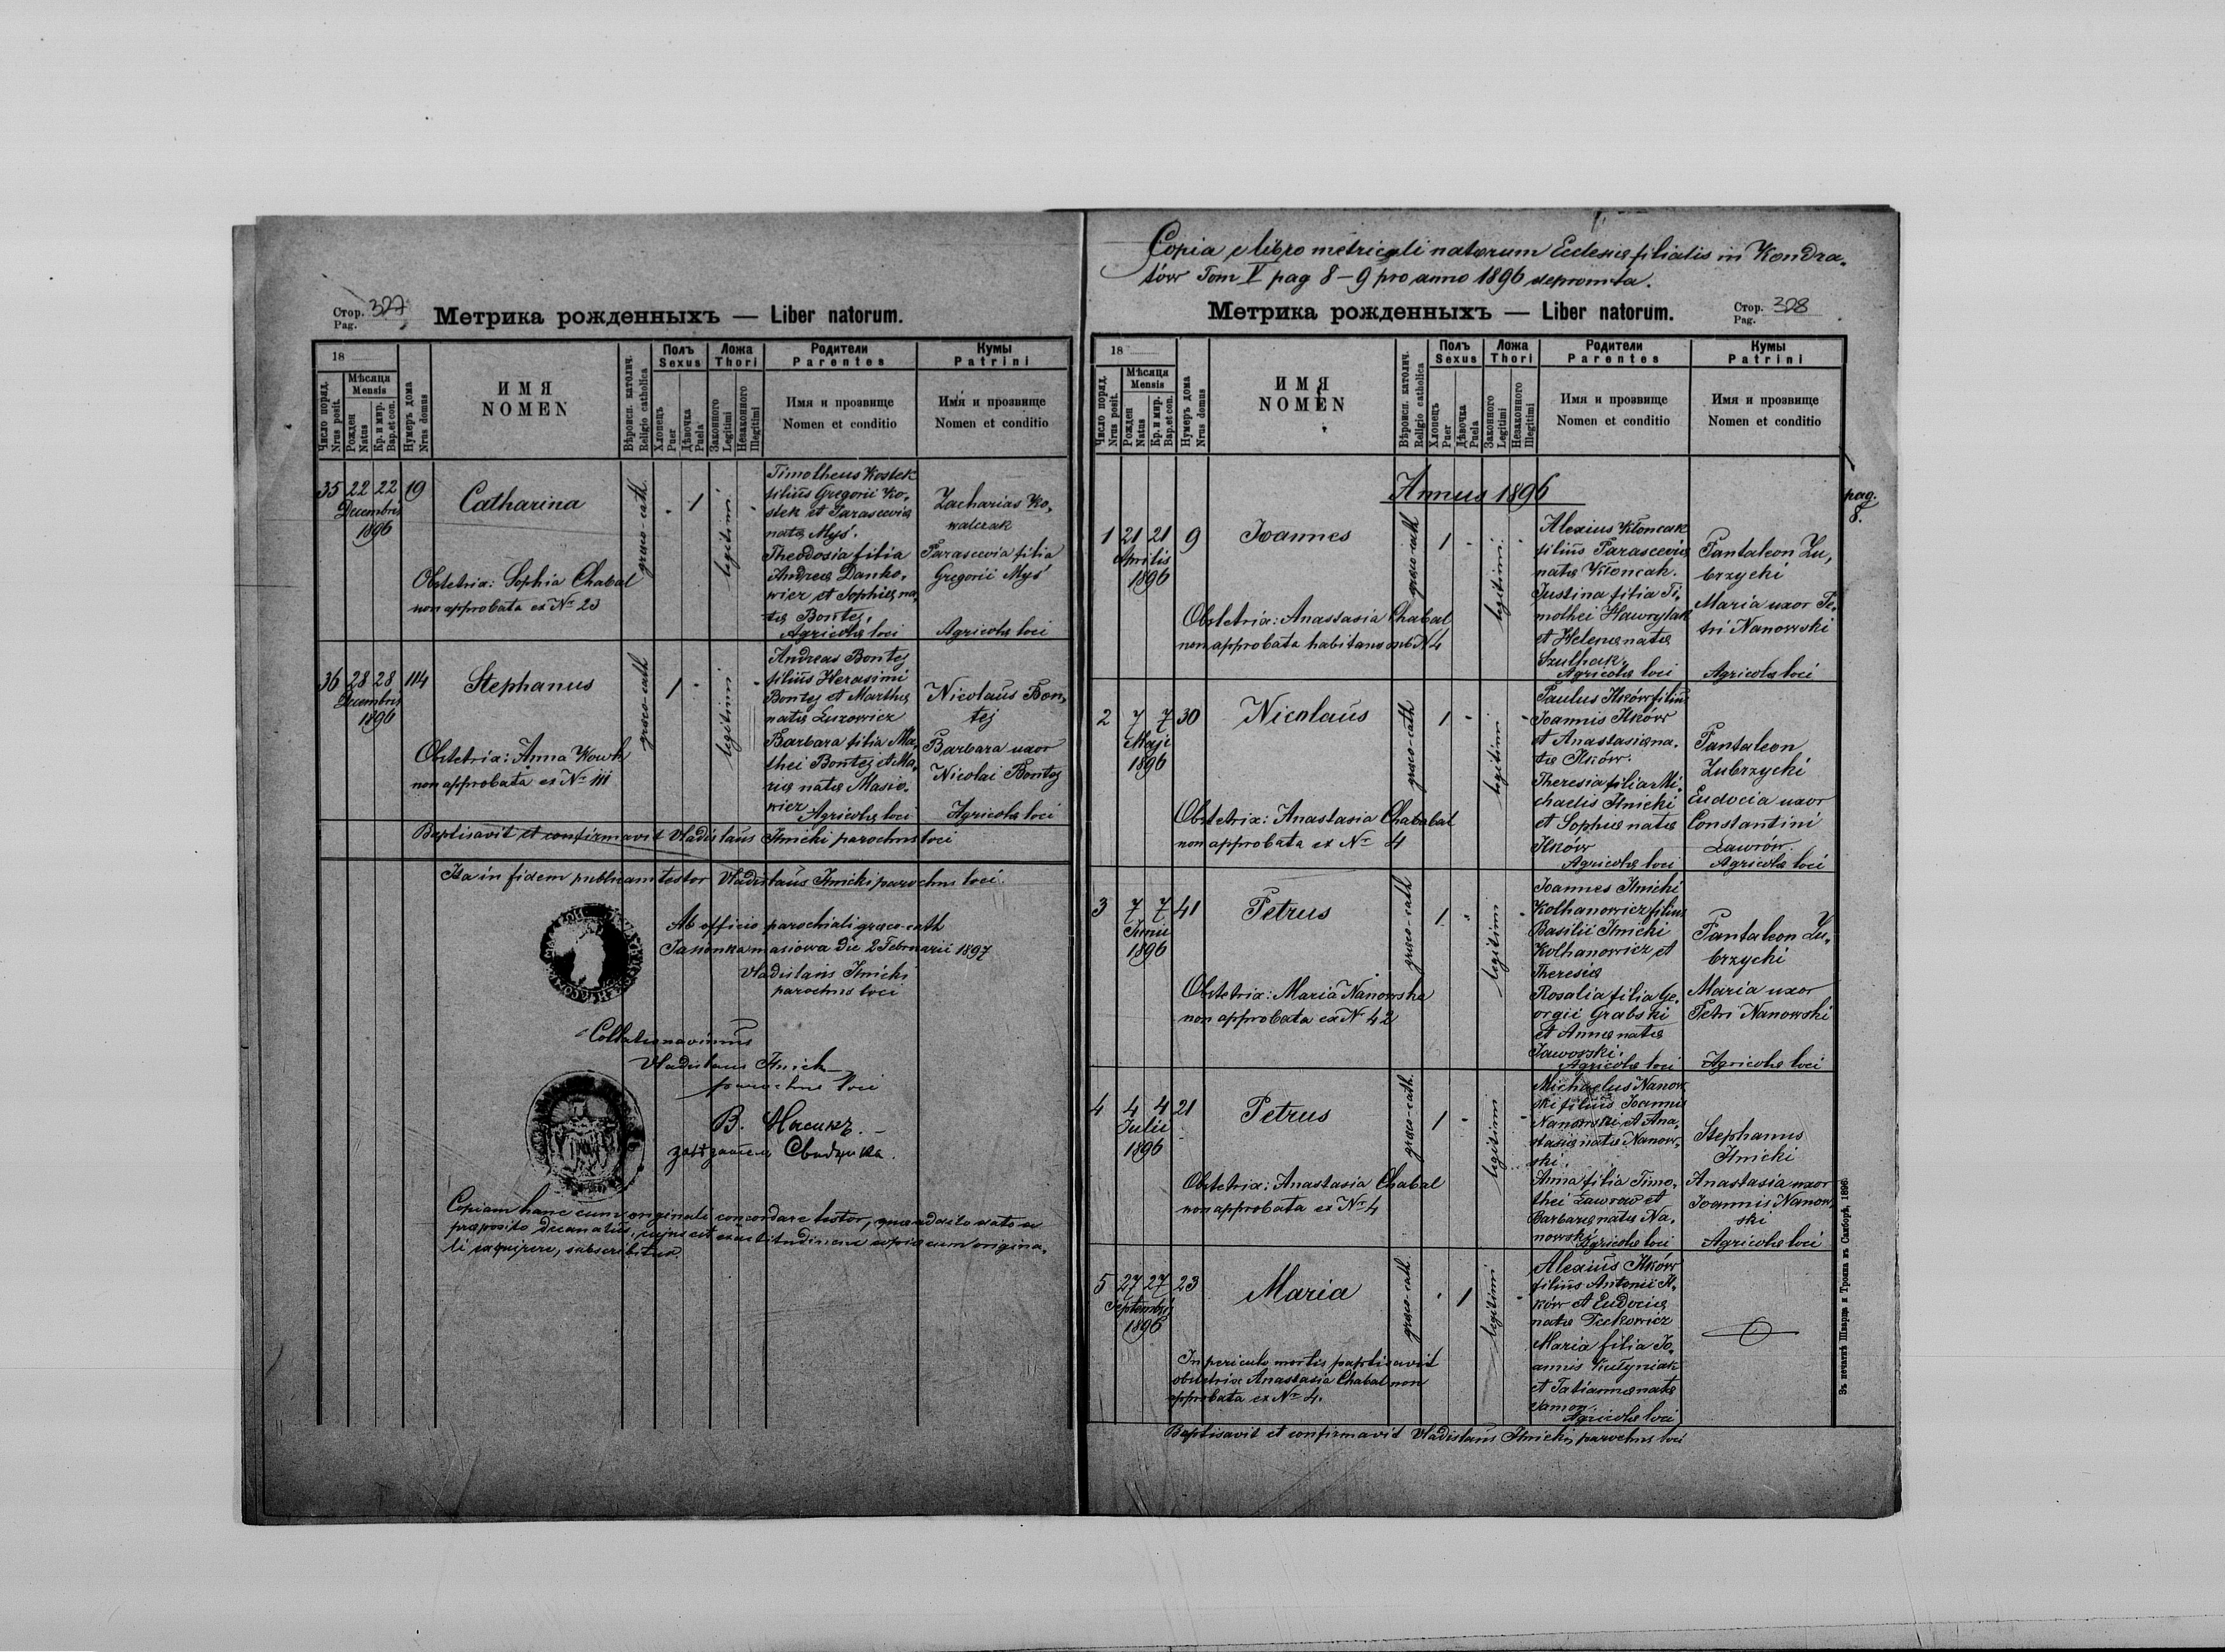 Стор. 327
Pag.
Метрика рожденныхъ — Liber natorum.
18
Число поряд.
Nrus posit.
Мѣсяца
Mensis
Рожден
Natus
Кр. и мир.
Bap. et con.
Нумеръ дома
Nrus domus
ИМЯ
NOMEN
Вѣроисп. католич.
Religio catholica
Полъ
Sexus
Хлопецъ
Puer
Дѣвочка
Puela
Ложа
Thori
Законного
Legitimi
Незаконного
Illegitimi
Родители
Parentes
Имя и прозвище
Nomen et conditio
Кумы
Patrini
Имя и прозвище
Nomen et conditio
35 22 22 19
Decembris
1896
Catharina
Obstetrix: Sophia Chabal
non approbata ex Nº 23
graeco-cath.
1
legitimi
Timotheus Kostek
filius Gregorii Ko-
stek et Parasceviae
natae Myś.
Theodosia filia
Andreae Danko-
wicz et Sophiae na-
tae Bontej.
Agricolae loci
Zacharias Ko-
walczak
Parascevia filia
Gregorii Myś
Agricolae loci
36 28 28 114
Decembris
1896
Stephanus
Obstetrix: Anna
non approbata ex Nº 111
graeco-cath
1
legitimi
Andreas Bontej
filius Herasimi
Bontej et Marthae
natae Luzowicz
Barbara filia Ma-
thei Bontej et Ma-
riae natae Masio-
wicz
Agricolae loci
Nicolaus Bon-
tej
Barbara uxor
Nicolai Bontej
Agricolae loci
Baptisavit et confirmavit Vladislaus Ilnicki parochus loci
Ita in fidem publicam testor Vladislaus Ilnicki parochus loci.
Ab officio parochiali graeco-cath
Jasionka masiowa die 2 Februarii 1897
Vladislaus Ilnicki
parochus loci
Collationavimus
Vladislaus Ilnicki
parochus loci
В.
Copiam hanc cum originali concordare testor,
praeposito decanatus, exactitudinem copiae cum origina-
li subscribitur.
Copia e libro metricali natorum Ecclesiae filialis in Kondra-
tów Tom V pag 8-9 pro anno 1896 depromta.
Метрика рожденныхъ — Liber natorum.
Стор. 328
Pag.
18
Число поряд.
Nrus posit.
Мѣсяца
Mensis
Рожден
Natus
Кр. и мир.
Bap. et con.
Нумеръ дома
Nrus domus
ИМЯ
NOMEN
Вѣроисп. католич.
Religio catholica
Полъ
Sexus
Хлопецъ
Puer
Дѣвочка
Puela
Ложа
Thori
Законного
Legitimi
Незаконного
Illegitimi
Родители
Parentes
Имя и прозвище
Nomen et conditio
Кумы
Patrini
Имя и прозвище
Nomen et conditio
Annus 1896
pag.
8.
1 21 21 9
Aprilis
1896
Joannes
Obstetrix: Anastasia Chabal
non approbata habitans sub N 4
graeco-cath
1
legitimi
Alexius Kłoncak
filius Parasceviae
natae Kłoncak.
Justina filia Ti-
mothei Hawrylak
et Helenae natae
Szulhak.
Agricolae loci
Pantaleon Zu-
brzycki
Maria uxor Pe-
tri Nanowski
Agricolae loci
2 7 7 30
Maji
1896
Nicolaus
Obstetrix: Anastasia Chababal
non approbata ex Nº 4
graeco-cath
1
legitimi
Paulus Ilków filius
Joannis Ilków
et Anastasiae na-
tae Ilków.
Theresia filia Mi-
chaelis Ilnicki
et Sophiae natae
Ilków
Agricolae loci
Pantaleon
Zubrzycki
Eudocia uxor
Constantini
Lawrów.
Agricolae loci
3 7 7 41
Junii
1896
Petrus
Obstetrix: Maria Nanowska
non approbata ex N 42
graeco-cath
1
legitimi
Joannes Ilnicki
Kolhanowicz filius
Basilii Ilnicki
Kolhanowicz et
Theresiae
Rosalia filia Ge-
orgii Grabski
et Annae natae
Jaworski.
Agricolae loci
Pantaleon Zu-
brzycki
Maria uxor
Petri Nanowski
Agricolae loci
4 4 4 21
Julii
1896
Petrus
Obstetrix: Anastasia Chabal
non approbata ex Nº 4
graeco-cath.
1
legitimi
Michaelus Nanow-
ski filius Joannis
Nanowski et Ana-
stasiae natae Nanow-
ski.
Anna filia Timo-
thei Lawrow et
Barbarae natae Na-
nowski
Agricolae loci
Stephanus
Ilnicki
Anastasia uxor
Joannis Nanow-
ski
Agricolae loci
5 27 27 23
Septembris
1896
Maria
In periculo mortis baptisavit
obstetrix Anastasia Chabal non
approbata ex Nº 4.
graeco-cath.
1
legitimi
Alexius Ilków
filius Antonii Il-
ków et Eudociae
natae Feckowicz
Maria filia Jo-
annis Kutyniak
et Tatiannae natae
Jamon.
Agricolae loci
Baptisavit et confirmavit Vladislaus Ilnicki parochus loci
Зъ печатнѣ Шварца и Трояна въ Самборѣ, 1896.